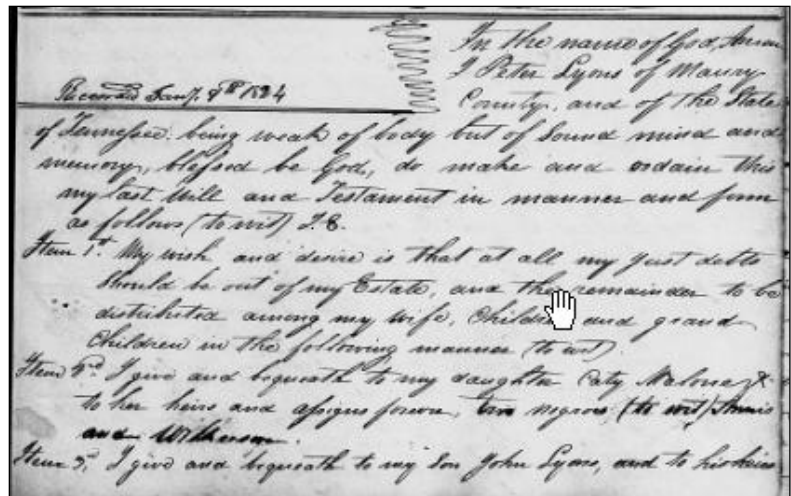 In the name of God, Amen
I Peter Lyons of Maury
Recorded Jany. 8th 1824
County, and of the State
of Tennessee being weak of body but of Sound mind and
memory, blessed be God, do make and ordain this
my last Will and Testament in manner and form
as follows (to wit) I.E.
Item 1st. My wish and desire is that at all my just debts
Should be out of my Estate, and the remainder to be
distributed among my wife, Children and grand
Children in the following manner (to wit).
Item 2nd I give and bequeath to my daughter Caty Malone &
to her heirs and assigns forever, two negroes (to wit)
and Wilkerson.
Item 3d. I give and bequeath to my Son John Lyons, and to his heirs